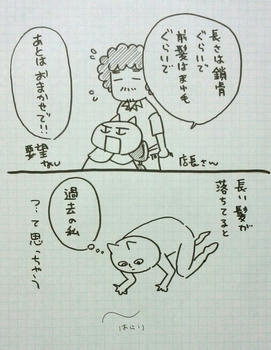 長さは鎖骨
ぐらいで
前髪はまゆ毛
ぐらいで
あとは
おまかせで!!
要望
ない
店長さん
長い髪が
落ちてると
過去の私
?って思っちゃう
はにり